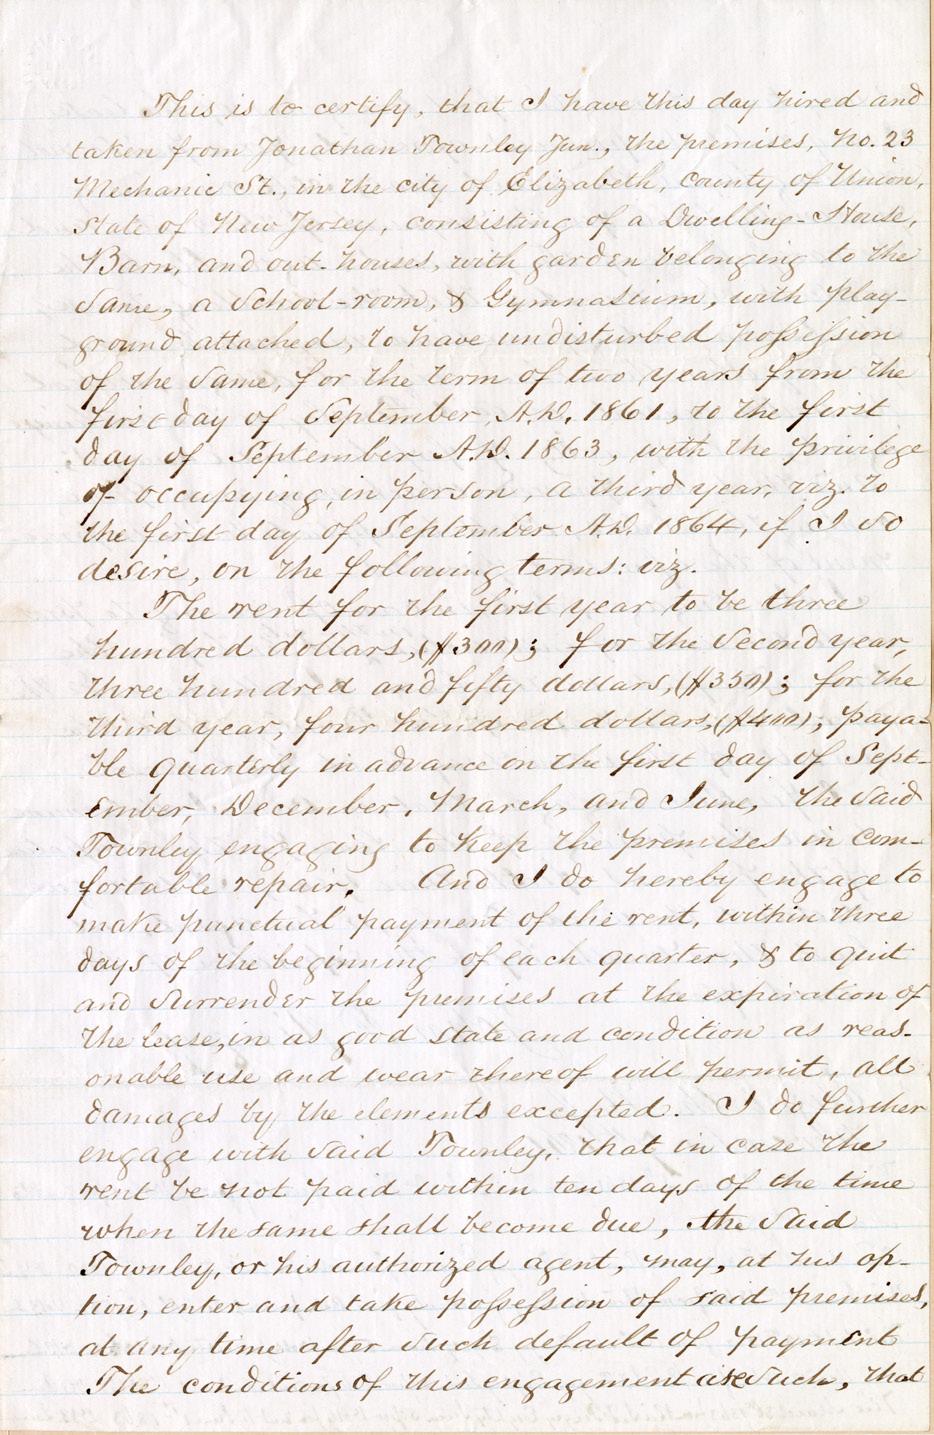 This is to certify, that I have this day hired and
taken from Jonathan Townley Jun., the premises, No. 23
Mechanic St., in the city of Elizabeth, county of Union,
State of New Jersey, consisting of a Dwelling-House,
Barn, and out-houses, with garden belonging to the
Same, a School-room, & Gymnasium, with play-
ground attached, to have undisturbed possession
of the Same, for the term of two years from the
first day of September, A.D. 1861, to the first
day of September A.D. 1863, with the privilege
of occupying, in person, a third year, viz. to
the first day of September A.D. 1864, if I so
desire, on the following terms: viz.
The rent for the first year to be three
hundred dollars, ($300); for the Second year,
three hundred and fifty dollars, ($350); for the
third year, four hundred dollars, ($400); paya-
ble quarterly in advance on the first day of Sept-
ember, December, March, and June, the Said
Townley engaging to keep the premises in com-
fortable repair. And I do hereby engage to
make punctual payment of the rent, within three
days of the beginning of each quarter, & to quit
and Surrender the premises at the expiration of
the lease, in as good state and condition as reas-
onable use and wear thereof will permit, all
damages by the elements excepted. I do further
engage with Said Townley, that in case the
rent be not paid within ten days of the time
when the same shall become due, the Said
Townley, or his authorized agent, may, at his op-
tion, enter and take possession of said premises,
at any time after Such default of payment
The conditions of this engagement are Such, that